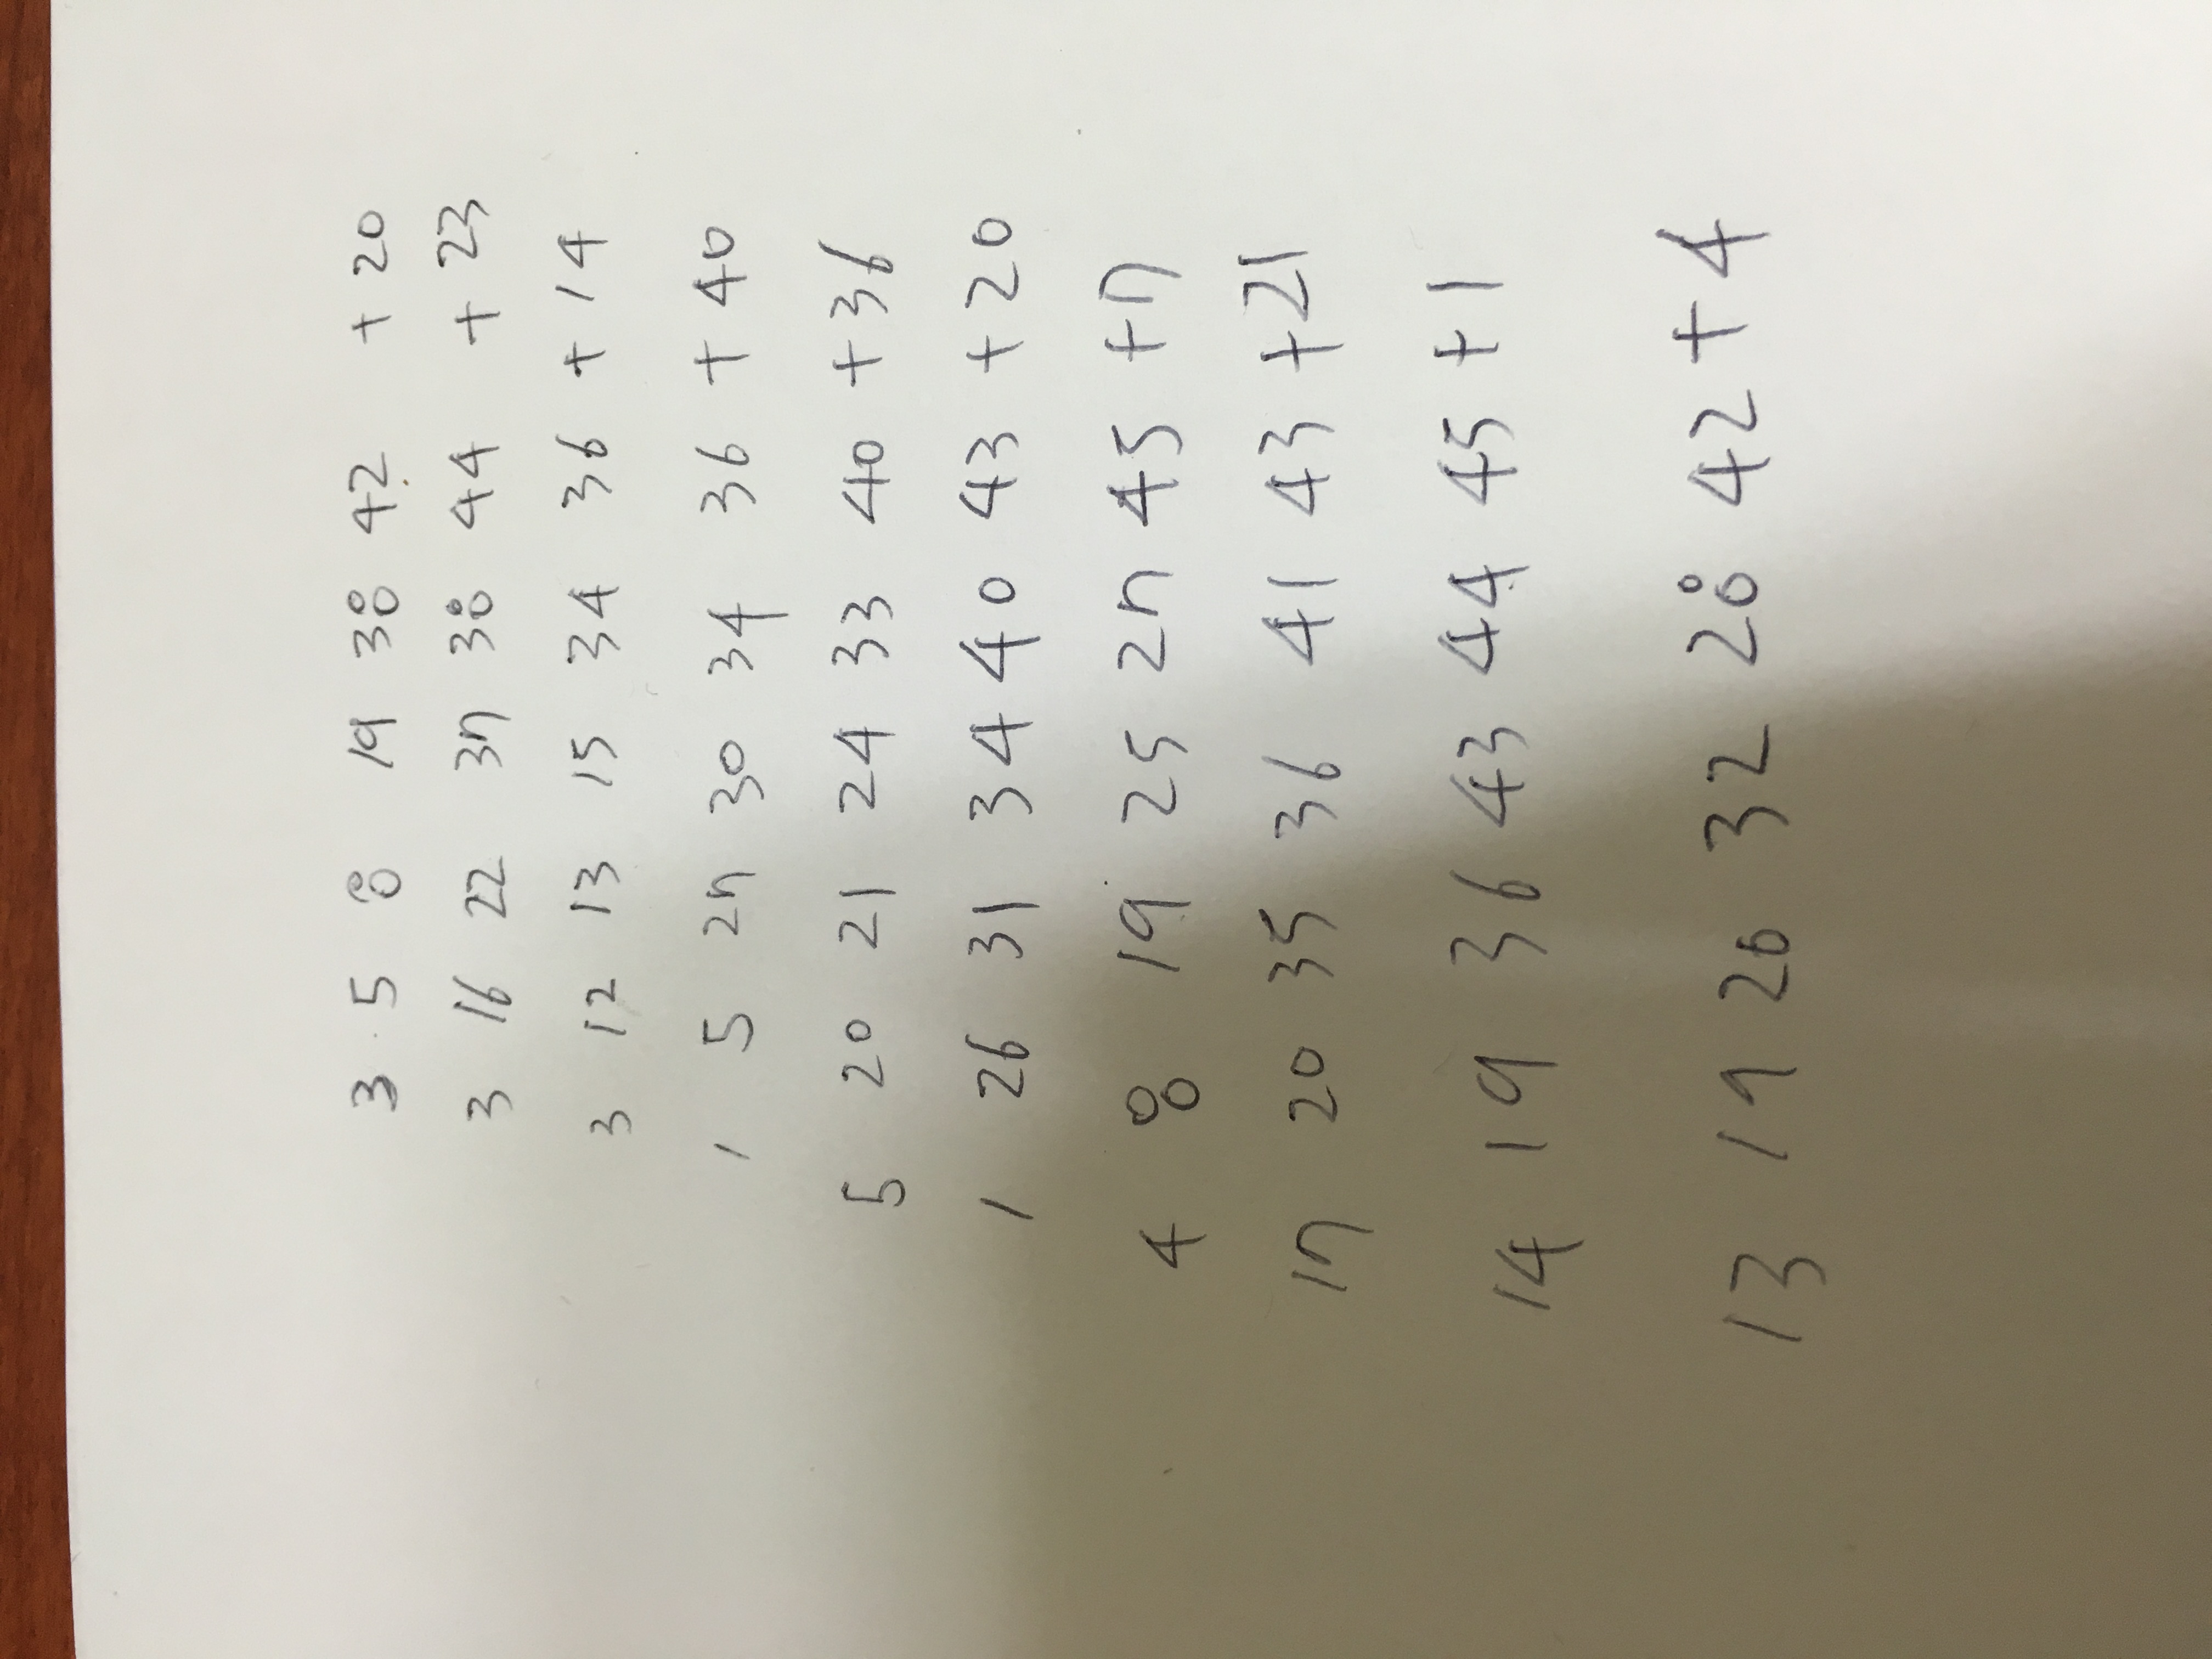 3 5 8 19 38 42 + 20
3 16 22 37 38 44 + 23
3 12 13 15 34 36 + 14
1 5 27 30 34 36 + 40
5 20 21 24 33 40 + 36
1 26 31 34 40 43 + 20
4 8 19 25 27 45 + 7
17 20 35 36 41 43 + 21
14 19 36 43 44 45 + 1
13 19 26 32 28 42 + 4